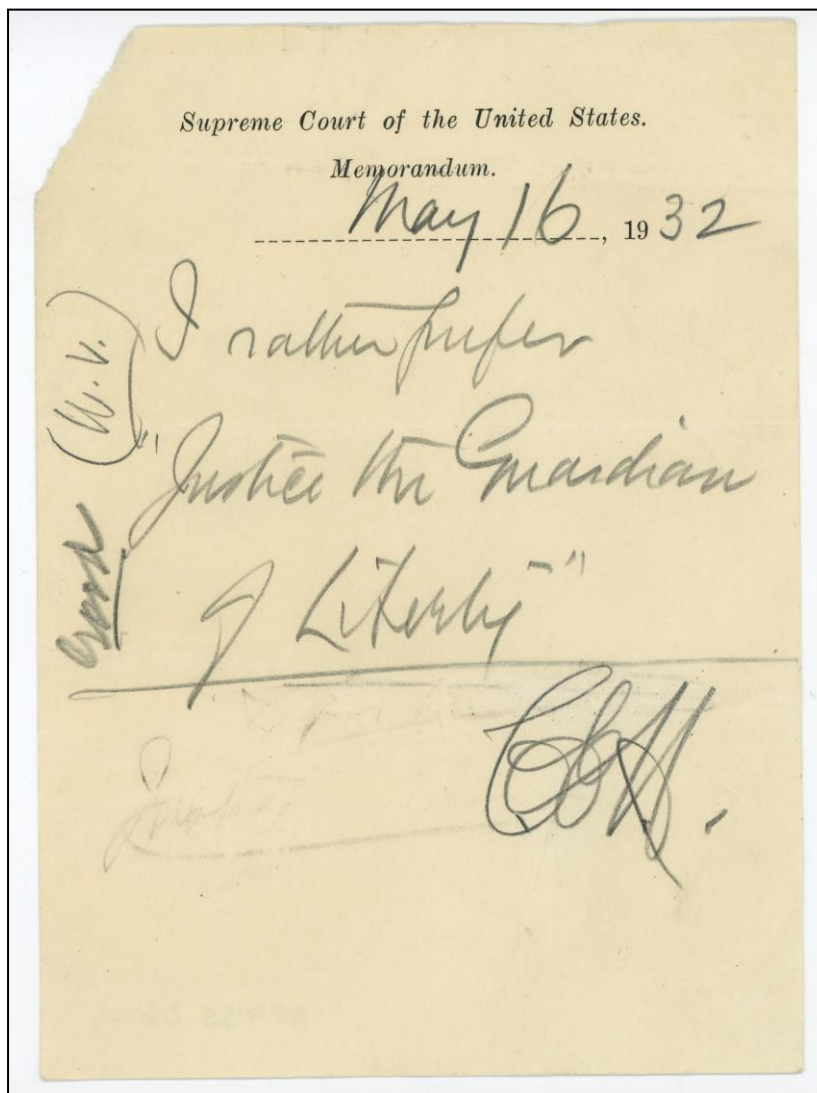 Supreme Court of the United States.
Memorandum.
May 16, 1932
I rather prefer
"Justice the Guardian
of Liberty"
CEH.
Good (W.V.)